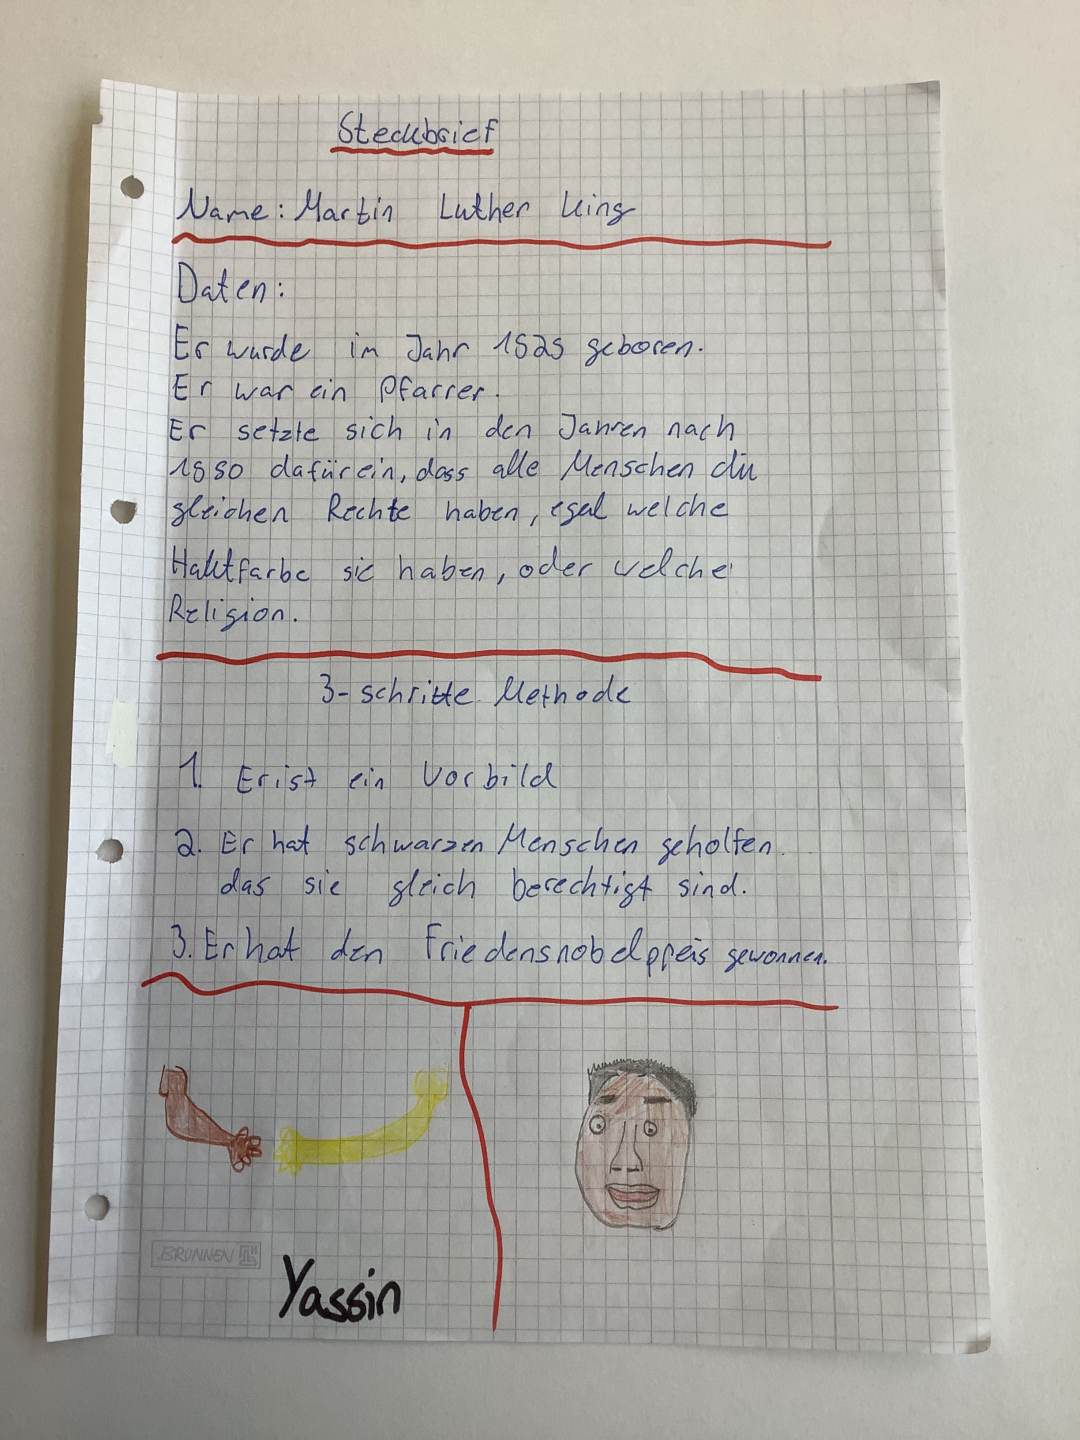 Steckbrief
Name: Martin Luther King
Daten:
Er wurde im Jahr 1929 geboren.
Er war ein Pfarrer.
Er setzte sich in den Jahren nach
1950 dafür ein, dass alle Menschen die
gleichen Rechte haben, egal welche
Hautfarbe sie haben, oder welche
Religion.
3-schritte Methode
1. Er ist ein Vorbild
2. Er hat schwarzen Menschen geholfen.
das sie gleich berechtigt sind.
3. Er hat den Friedensnobelpreis gewonnen.
BRUNNEN
Yassin